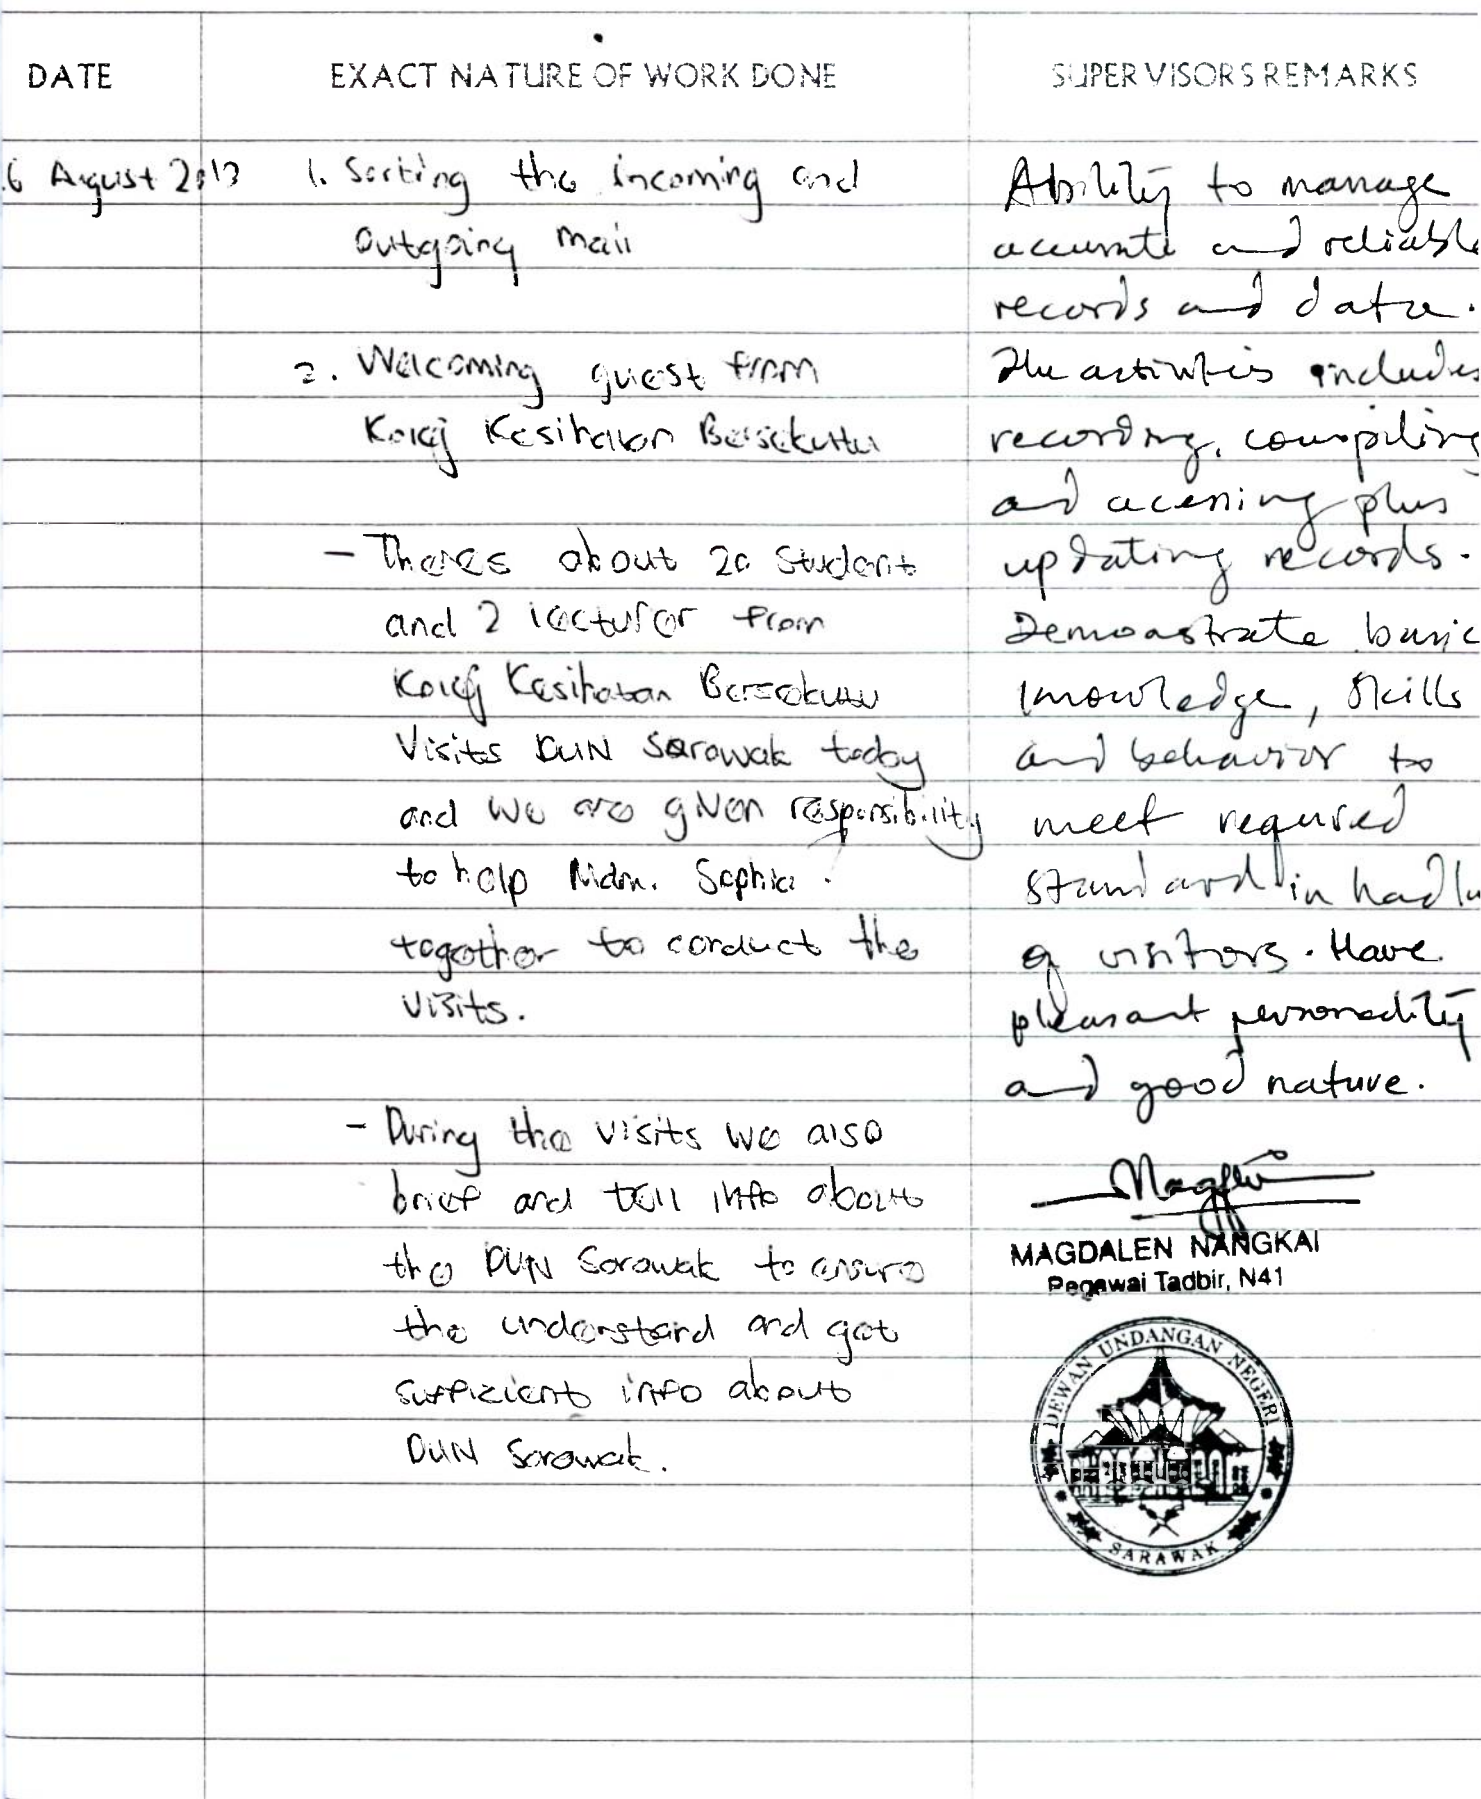 DATE
EXACT NATURE OF WORK DONE
SUPERVISORS REMARKS
6 August 2013
1. Sorting the incoming and
Outgoing mail
2. Welcoming guest from
Kolej Kesihatan Bersekutu
- Theres about 20 student
and 2 lecturer from
Kolej Kesihatan Bersekutu
Visits DUN Sarawak today
and we are given responsibility
to help Mdm. Sophia.
together to conduct the
visits.
- During the visits we also
brief and tell info about
the DUN Sarawak to ensure
the understand and get
sufficient info about
DUN Sarawak.
Ability to manage
accurate and reliable
records and data.
The activities includes
recording, compiling
and acessing plus
updating records.
Demonstrate basic
knowledge, skills
and behavior to
meet required
standard in
of visitors. Have
pleasant personality
and good nature.
MAGDALEN NANGKAI
Pegawai Tadbir, N41
DEWAN UNDANGAN NEGERI
SARAWAK